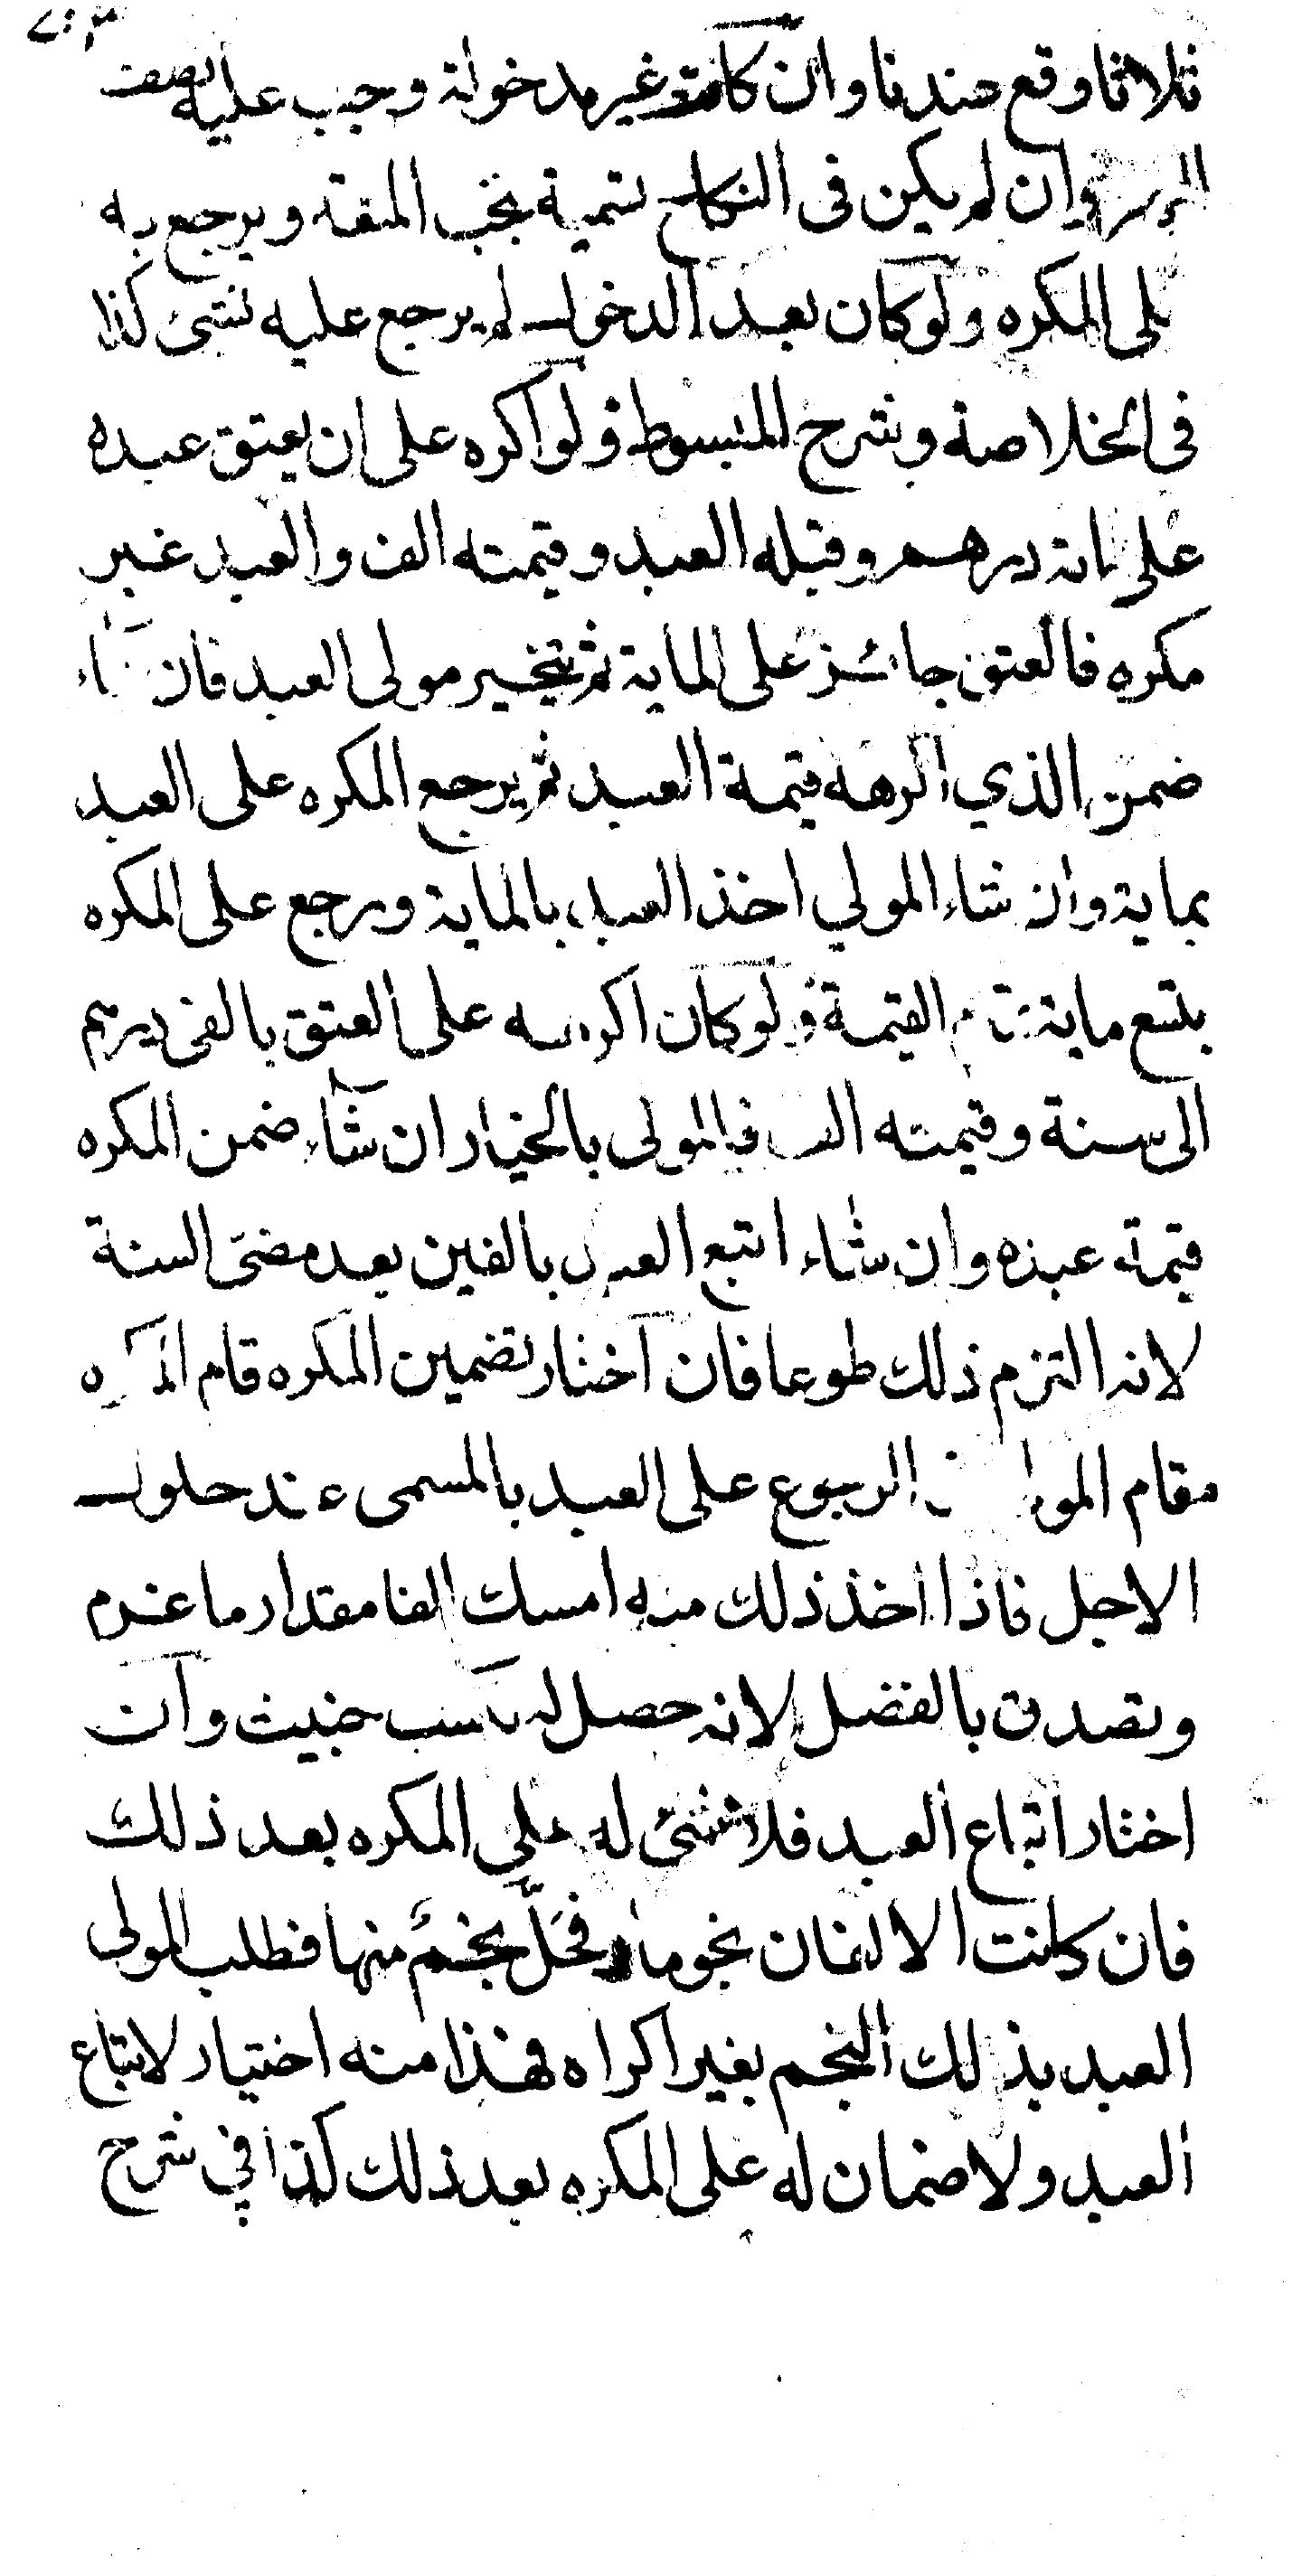 ثلاثا وقع عندنا وان كانت غير مدخولة وجب عليه نصف
وان لم يكن فى النكاح تسمية تجب المتعة ويرجع به
على المكره ولو كان بعد الدخول لم يرجع عليه بشئ كذا
فى الخلاصة وشرح المبسوط ولو اكره على ان يعتق عبده
على ماية درهم وقبله العبد وقيمته الف والعبد غير
مكره فالعتق جائز على الماية ثم يتخير مولى العبد فان شاء
ضمن الذي اكرهه قيمة العبد ثم يرجع المكره على العبد
بماية وان شاء المولي اخذ العبد بالماية ورجع على المكره
بتسع ماية تمام القيمة ولو كان اكرهه على العتق بالفى درهم
الى سنة وقيمته الف فالمولى بالخيار ان شاء ضمن المكره
قيمة عبده وان شاء اتبع العبد بالفين بعد مضى السنة
لانه التزم ذلك طوعا فان اختار تضمين المكره قام المكره
مقام المولى الرجوع على العبد بالمسمى عند حلول
الاجل فاذا اخذ ذلك منه امسك الفا مقدار ما غرم
وتصدق بالفضل لانه حصل له بكسب خبيث وان
اختار اتباع العبد فلا شئ له على المكره بعد ذلك
فان كانت الالفان نجوما فحل نجم منها فطلب المولى
العبد بذلك النجم بغير اكراه فهذا منه اختيار لاتباع
العبد ولا ضمان له على المكره بعد ذلك كذا في شرح